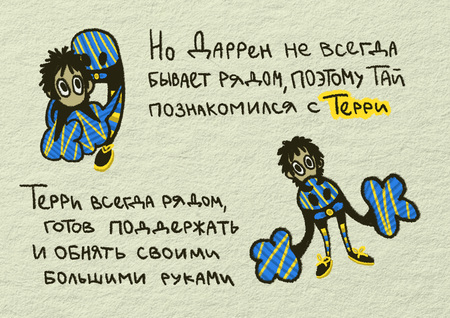 Но Даррен не всегда
бывает рядом, поэтому Тай
познакомился с Терри
Терри всегда рядом,
готов поддержать
и обнять своими
большими руками